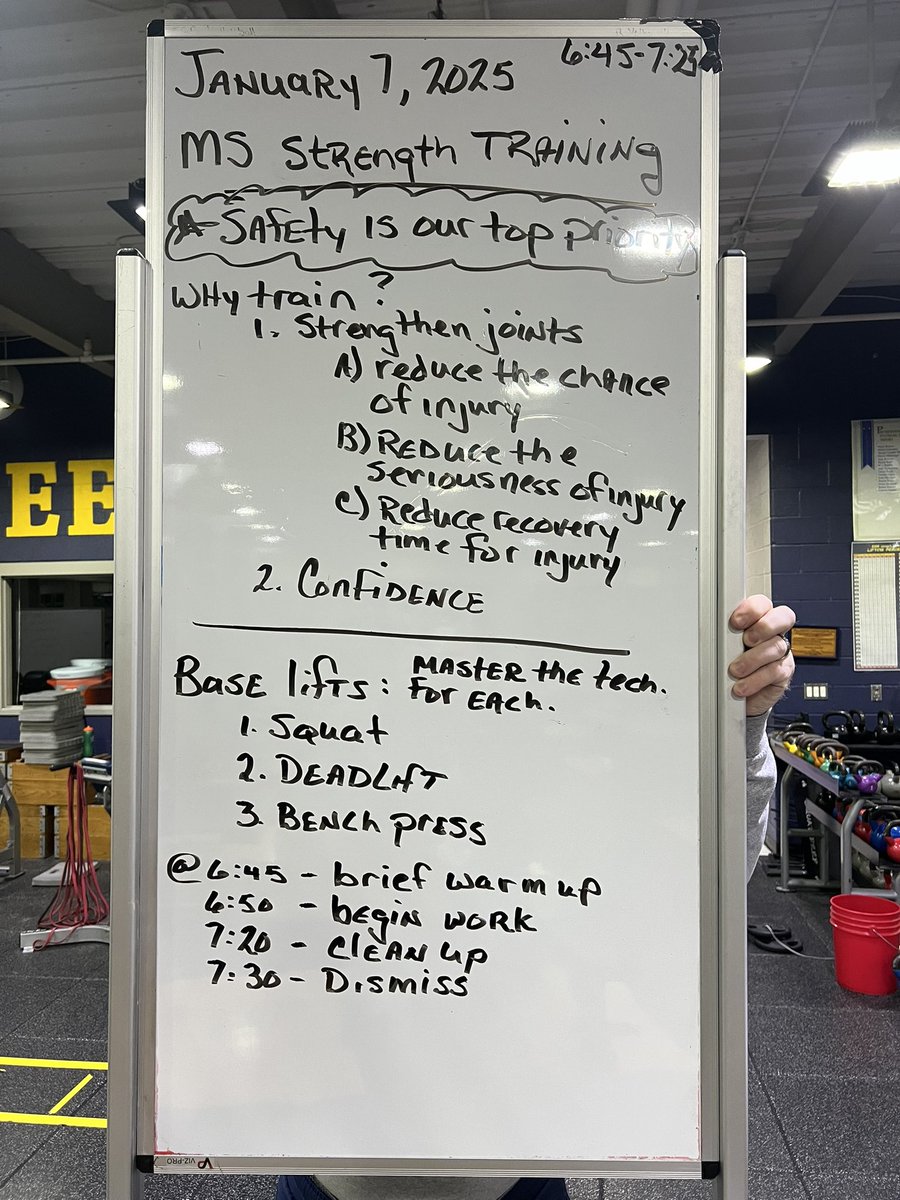 6:45-7:25
January 7, 2025
MS Strength Training
Safety is our top priority
Why train?
1. Strengthen joints
A) reduce the chance
of injury
B) Reduce the
seriousness of injury
C) Reduce recovery
time for injury
2. Confidence
Base lifts: Master the tech.
for each.
1. Squat
2. Deadlift
3. Bench press
@ 6:45 - brief warm up
6:50 - begin work
7:20 - clean up
7:30 - Dismiss
EE
VIZ-PRO